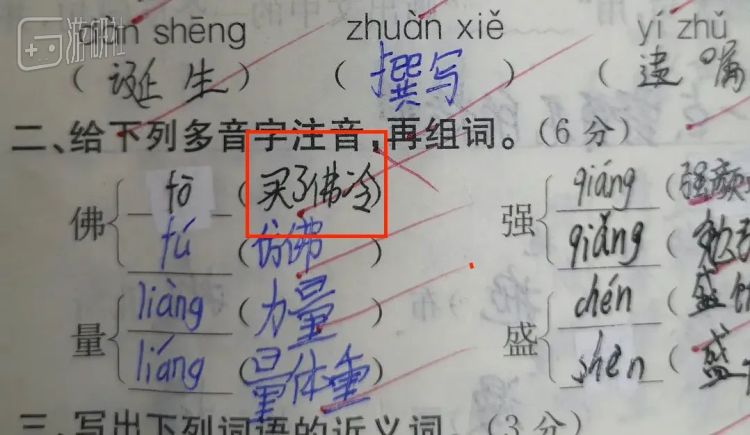 游研社
dàn shēng zhuàn xiě yí zhǔ
(诞生) (撰写) (遗嘱
二、给下列多音字注音,再组词。(6分)
佛 fō (买了佛冷) 强 qiáng (强颜
fú (仿佛) qiǎng (勉强
量 liàng (力量) 盛 chén (盛饭
liáng (量体重) shèn (盛
三、写出下列词语的近义词。(3分)